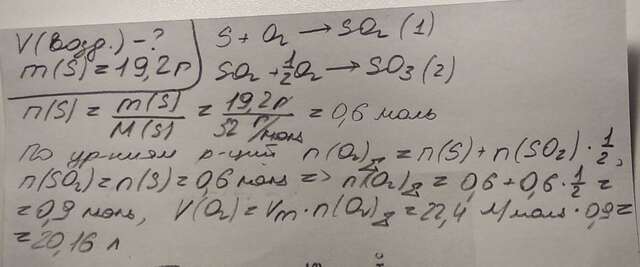 V(возд.) – ?
m(S) = 19,2 г
S + O₂ → SO₂ (1)
SO₂ + 1/2 O₂ → SO₃ (2)
n(S) = m(S)/M(S) = 19,2 г/32 г/моль = 0,6 моль
По ур-ниям р-ций n(O₂)Σ = n(S) + n(SO₂) · 1/2,
n(SO₂) = n(S) = 0,6 моль => n(O₂)Σ = 0,6 + 0,6 · 1/2 =
= 0,9 моль, V(O₂) = Vm · n(O₂)Σ = 22,4 л/моль · 0,9 =
= 20,16 л